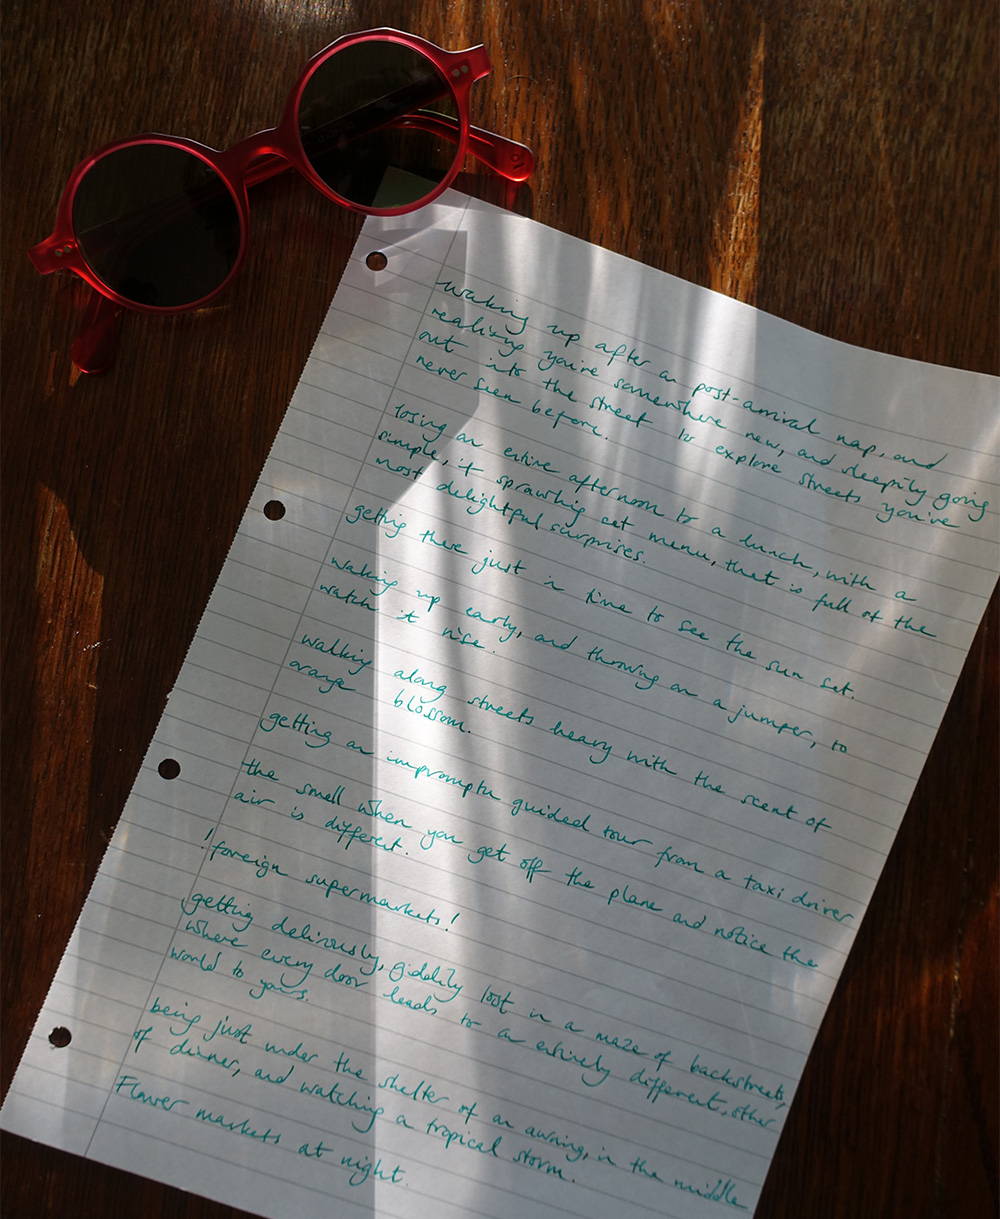 waking up after an post-arrival nap, and
realising you're somewhere new, and sleepily going
out into the street to explore streets you've
never seen before.
losing an entire afternoon to a lunch, with a
simple, it sprawling set menu, that is full of the
most delightful surprises.
getting there just in time to see the sun set.
waking up early, and throwing on a jumper, to
watch it rise.
walking along streets heavy with the scent of
orange blossom.
getting an impromptu guided tour from a taxi driver
the smell when you get off the plane and notice the
air is different.
! foreign supermarkets!
getting deliriously, giddily lost in a maze of backstreets,
where every door leads to an entirely different, other
world to yours.
being just under the shelter of an awning, in the middle
of dinner, and watching a tropical storm.
Flower markets at night.